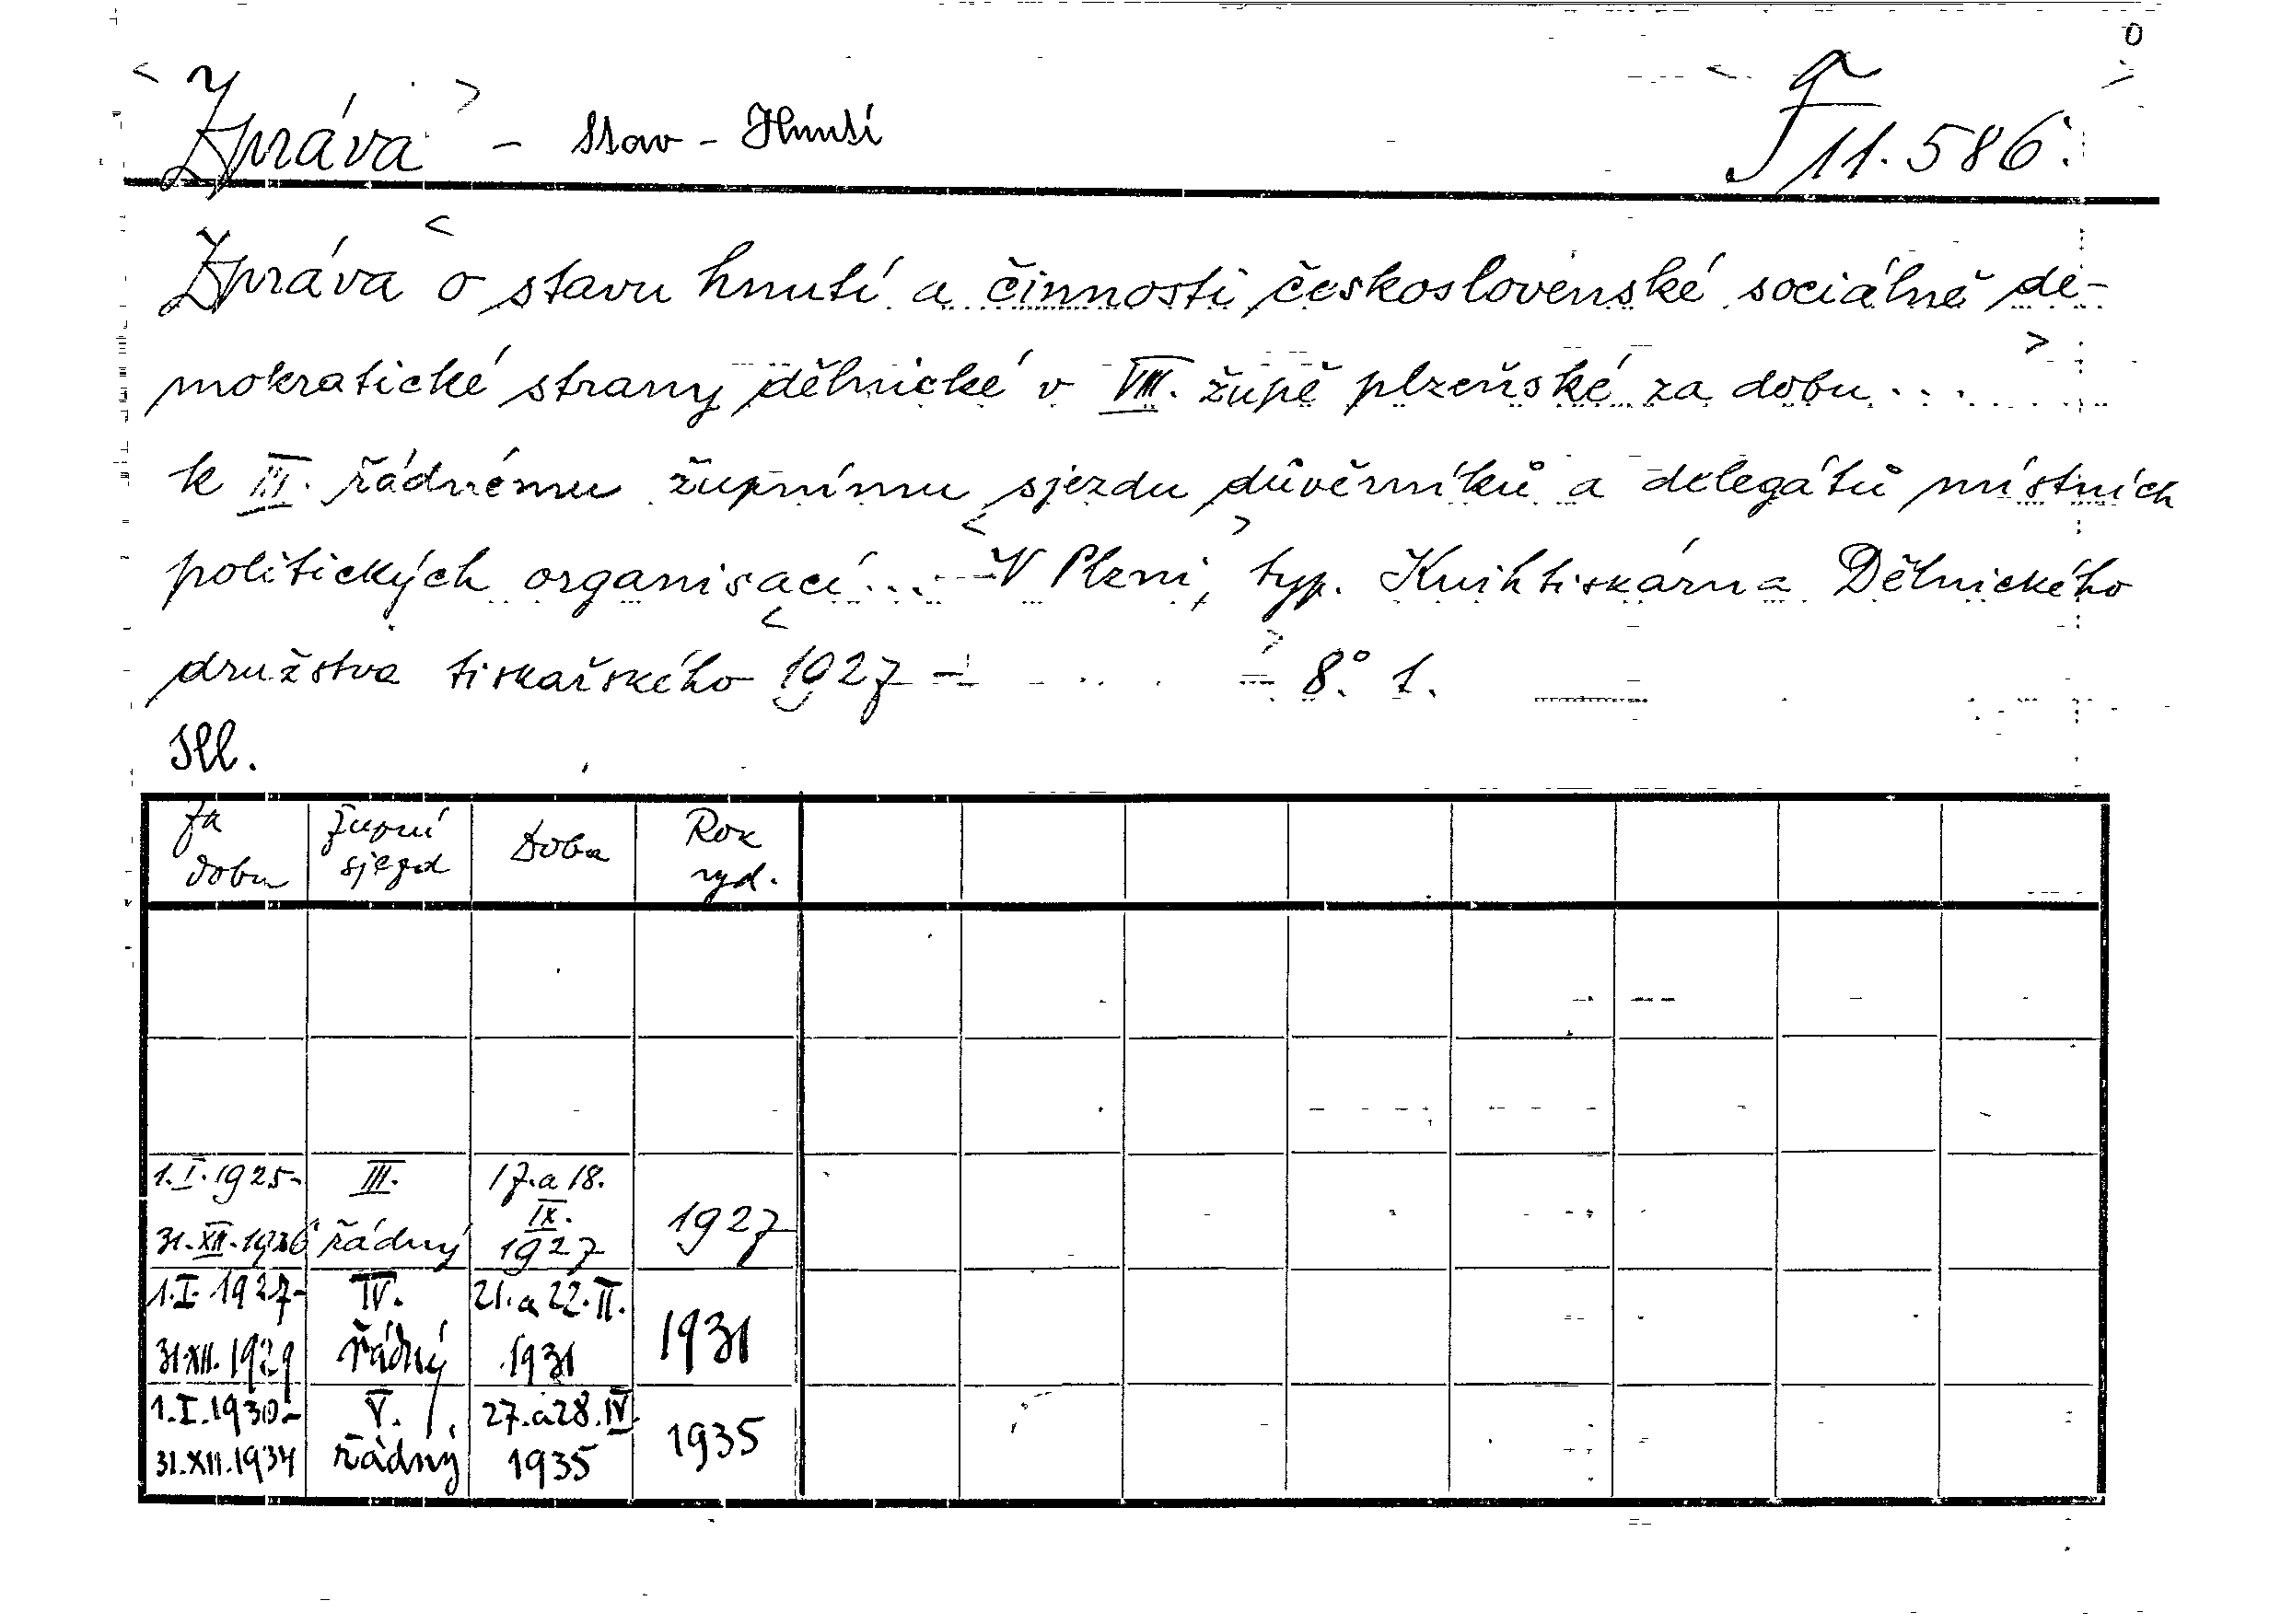 < Zpráva > - Stav - Hnutí < F 11.586. >
0
< Zpráva o stavu hnutí a činnosti československé sociálně de-
mokratické strany dělnické v VIII. župě plzeňské za dobu... >
k III. řádnému župnímu sjezdu důvěrníků a delegátů místních
politických organisací... - < V Plzni, > typ. Knihtiskárna Dělnického
družstva tiskařského < 1927 - > 8°. 1.
Ill.
Za dobu | Župní sjezd | Doba | Rok vyd.
1.I.1925- 31.XII.1926 | III. řádný | 17. a 18. IX. 1927 | 1927
1.I.1927- 31.XII.1929 | IV. řádný | 21. a 22.II. 1931 | 1931
1.I.1930- 31.XII.1934 | V. řádný | 27. a 28.IV. 1935 | 1935